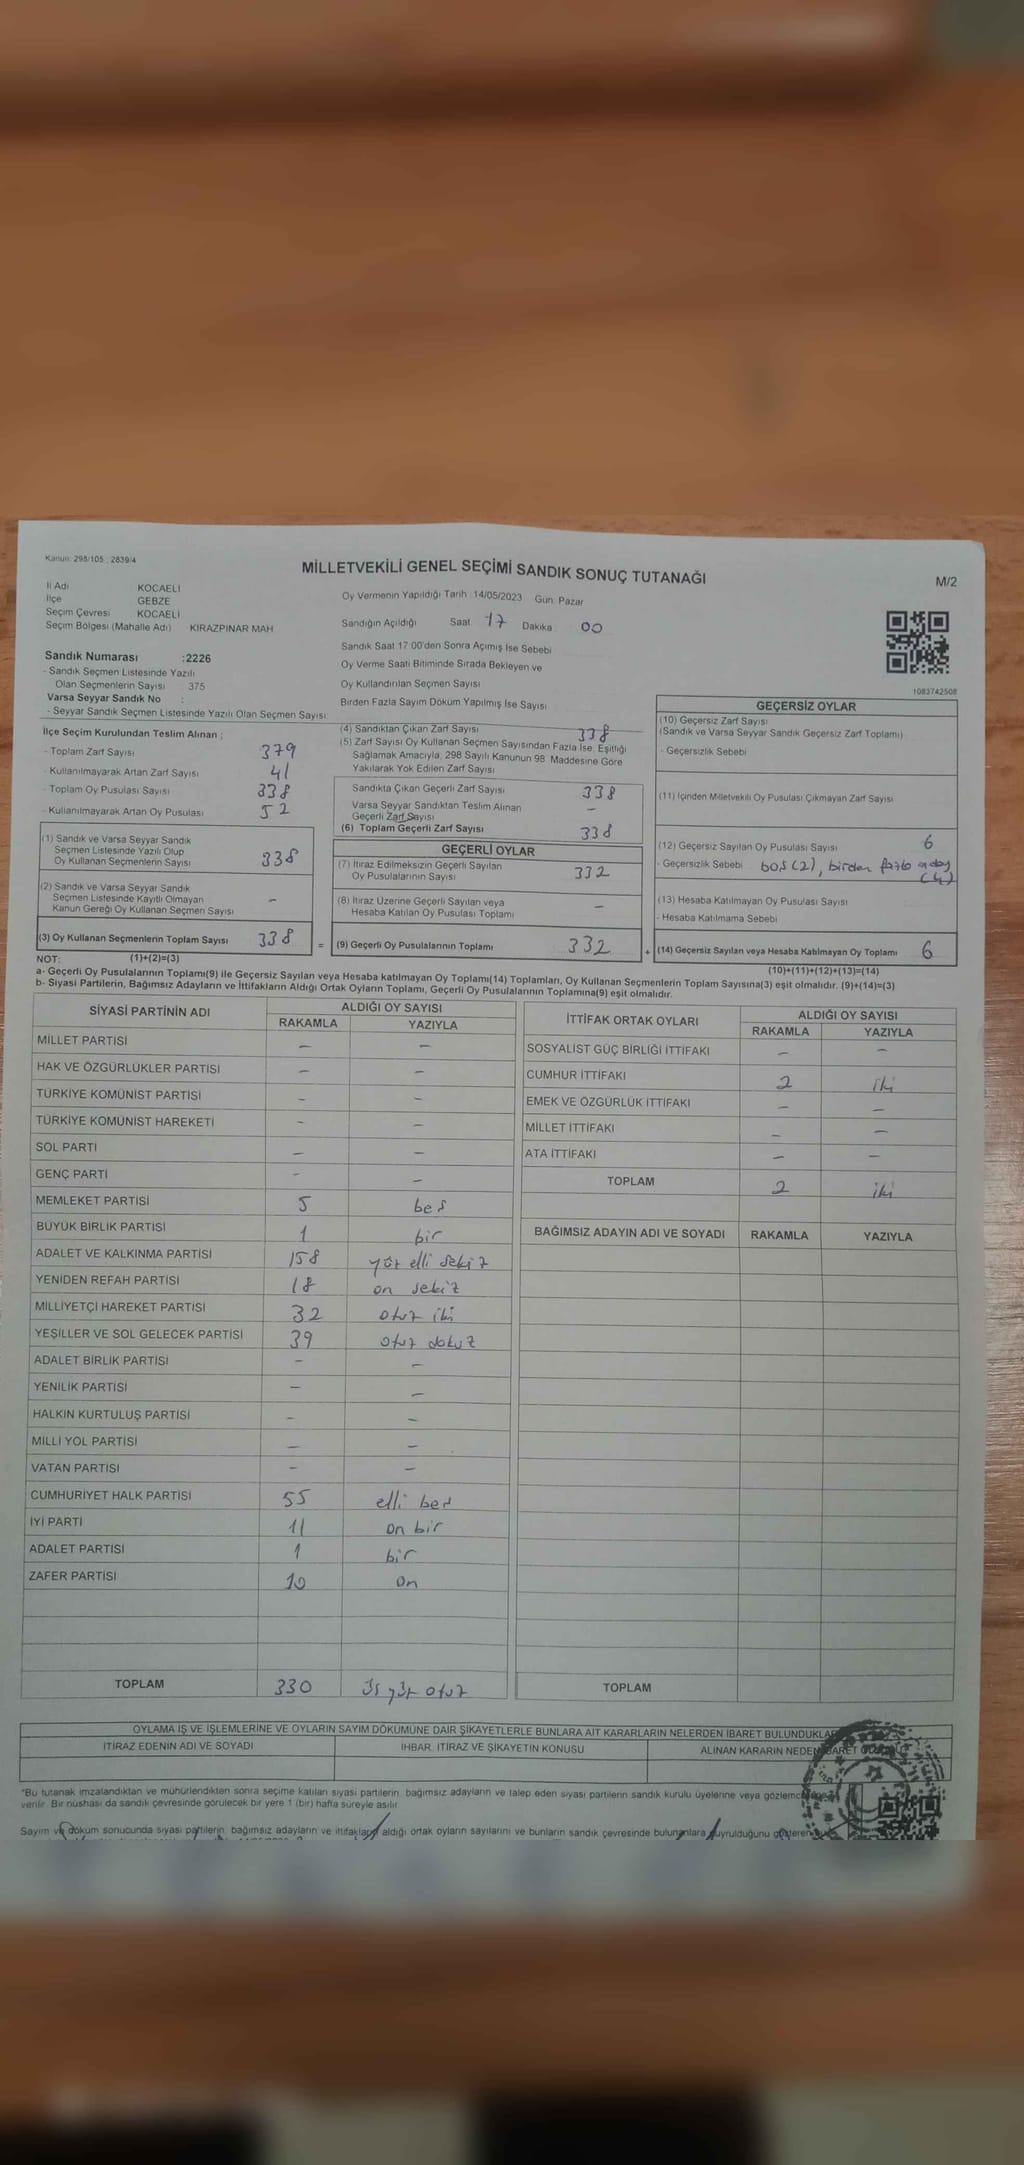 Kanun: 298/105 , 2839/4
MİLLETVEKİLİ GENEL SEÇİMİ SANDIK SONUÇ TUTANAĞI
M/2
İl Adı KOCAELİ
İlçe GEBZE
Seçim Çevresi KOCAELİ
Seçim Bölgesi (Mahalle Adı) KIRAZPINAR MAH
Sandık Numarası :2226
- Sandık Seçmen Listesinde Yazılı
Olan Seçmenlerin Sayısı : 375
Varsa Seyyar Sandık No :
- Seyyar Sandık Seçmen Listesinde Yazılı Olan Seçmen Sayısı:
Oy Vermenin Yapıldığı Tarih :14/05/2023 Gün: Pazar
Sandığın Açıldığı Saat 17 Dakika 00
Sandık Saat 17:00'den Sonra Açımış İse Sebebi
Oy Verme Saati Bitiminde Sırada Bekleyen ve
Oy Kullandırılan Seçmen Sayısı
Birden Fazla Sayım Döküm Yapılmış İse Sayısı
1083742508
İlçe Seçim Kurulundan Teslim Alınan ;
- Toplam Zarf Sayısı 379
- Kullanılmayarak Artan Zarf Sayısı 41
- Toplam Oy Pusulası Sayısı 338
- Kullanılmayarak Artan Oy Pusulası 52
(1) Sandık ve Varsa Seyyar Sandık
Seçmen Listesinde Yazılı Olup
Oy Kullanan Seçmenlerin Sayısı 338
(2) Sandık ve Varsa Seyyar Sandık
Seçmen Listesinde Kayıtlı Olmayan
Kanun Gereği Oy Kullanan Seçmen Sayısı -
(3) Oy Kullanan Seçmenlerin Toplam Sayısı 338
(1)+(2)=(3)
(4) Sandıktan Çıkan Zarf Sayısı 338
(5) Zarf Sayısı Oy Kullanan Seçmen Sayısından Fazla İse, Eşitliği
Sağlamak Amacıyla, 298 Sayılı Kanunun 98. Maddesine Göre
Yakılarak Yok Edilen Zarf Sayısı
Sandıkta Çıkan Geçerli Zarf Sayısı 338
Varsa Seyyar Sandıktan Teslim Alınan
Geçerli Zarf Sayısı -
(6) Toplam Geçerli Zarf Sayısı 338
GEÇERLİ OYLAR
(7) İtiraz Edilmeksizin Geçerli Sayılan
Oy Pusulalarının Sayısı 332
(8) İtiraz Üzerine Geçerli Sayılan veya
Hesaba Katılan Oy Pusulası Toplamı -
= (9) Geçerli Oy Pusulalarının Toplamı 332
GEÇERSİZ OYLAR
(10) Geçersiz Zarf Sayısı
(Sandık ve Varsa Seyyar Sandık Geçersiz Zarf Toplamı)
- Geçersizlik Sebebi
(11) İçinden Milletvekili Oy Pusulası Çıkmayan Zarf Sayısı
(12) Geçersiz Sayılan Oy Pusulası Sayısı 6
- Geçersizlik Sebebi boş (2), birden fazla aday
(4)
(13) Hesaba Katılmayan Oy Pusulası Sayısı
- Hesaba Katılmama Sebebi
+ (14) Geçersiz Sayılan veya Hesaba Katılmayan Oy Toplamı 6
(10)+(11)+(12)+(13)=(14)
NOT:
a- Geçerli Oy Pusulalarının Toplamı(9) ile Geçersiz Sayılan veya Hesaba katılmayan Oy Toplamı(14) Toplamları, Oy Kullanan Seçmenlerin Toplam Sayısına(3) eşit olmalıdır. (9)+(14)=(3)
b- Siyasi Partilerin, Bağımsız Adayların ve İttifakların Aldığı Ortak Oyların Toplamı, Geçerli Oy Pusulalarının Toplamına(9) eşit olmalıdır.
SİYASİ PARTİNİN ADI ALDIĞI OY SAYISI
RAKAMLA YAZIYLA
MİLLET PARTİSİ - -
HAK VE ÖZGÜRLÜKLER PARTİSİ - -
TÜRKİYE KOMÜNİST PARTİSİ - -
TÜRKİYE KOMÜNİST HAREKETİ - -
SOL PARTİ - -
GENÇ PARTİ - -
MEMLEKET PARTİSİ 5 beş
BÜYÜK BİRLİK PARTİSİ 1 bir
ADALET VE KALKINMA PARTİSİ 158 yüz elli sekiz
YENİDEN REFAH PARTİSİ 18 on sekiz
MİLLİYETÇİ HAREKET PARTİSİ 32 otuz iki
YEŞİLLER VE SOL GELECEK PARTİSİ 39 otuz dokuz
ADALET BİRLİK PARTİSİ - -
YENİLİK PARTİSİ - -
HALKIN KURTULUŞ PARTİSİ - -
MİLLİ YOL PARTİSİ - -
VATAN PARTİSİ - -
CUMHURİYET HALK PARTİSİ 55 elli beş
İYİ PARTİ 11 on bir
ADALET PARTİSİ 1 bir
ZAFER PARTİSİ 10 on
TOPLAM 330 üç yüz otuz
İTTİFAK ORTAK OYLARI ALDIĞI OY SAYISI
RAKAMLA YAZIYLA
SOSYALİST GÜÇ BİRLİĞİ İTTİFAKI - -
CUMHUR İTTİFAKI 2 iki
EMEK VE ÖZGÜRLÜK İTTİFAKI - -
MİLLET İTTİFAKI - -
ATA İTTİFAKI - -
TOPLAM 2 iki
BAĞIMSIZ ADAYIN ADI VE SOYADI RAKAMLA YAZIYLA
TOPLAM
OYLAMA İŞ VE İŞLEMLERİNE VE OYLARIN SAYIM DÖKÜMÜNE DAİR ŞİKAYETLERLE BUNLARA AİT KARARLARIN NELERDEN İBARET BULUNDUKLA
İTİRAZ EDENİN ADI VE SOYADI İHBAR, İTİRAZ VE ŞİKAYETİN KONUSU ALINAN KARARIN NEDEN İBARET
*Bu tutanak imzalandıktan ve mühürlendikten sonra seçime katılan siyasi partilerin, bağımsız adayların ve talep eden siyasi partilerin sandık kurulu üyelerine veya
verilir. Bir nüshası da sandık çevresinde görülecek bir yere 1 (bir) hafta süreyle asılır.
Sayım ve döküm sonucunda siyasi partilerin, bağımsız adayların ve ittifakların aldığı ortak oyların sayılarını ve bunların sandık çevresinde bulunanlara duyrulduğunu gösteren